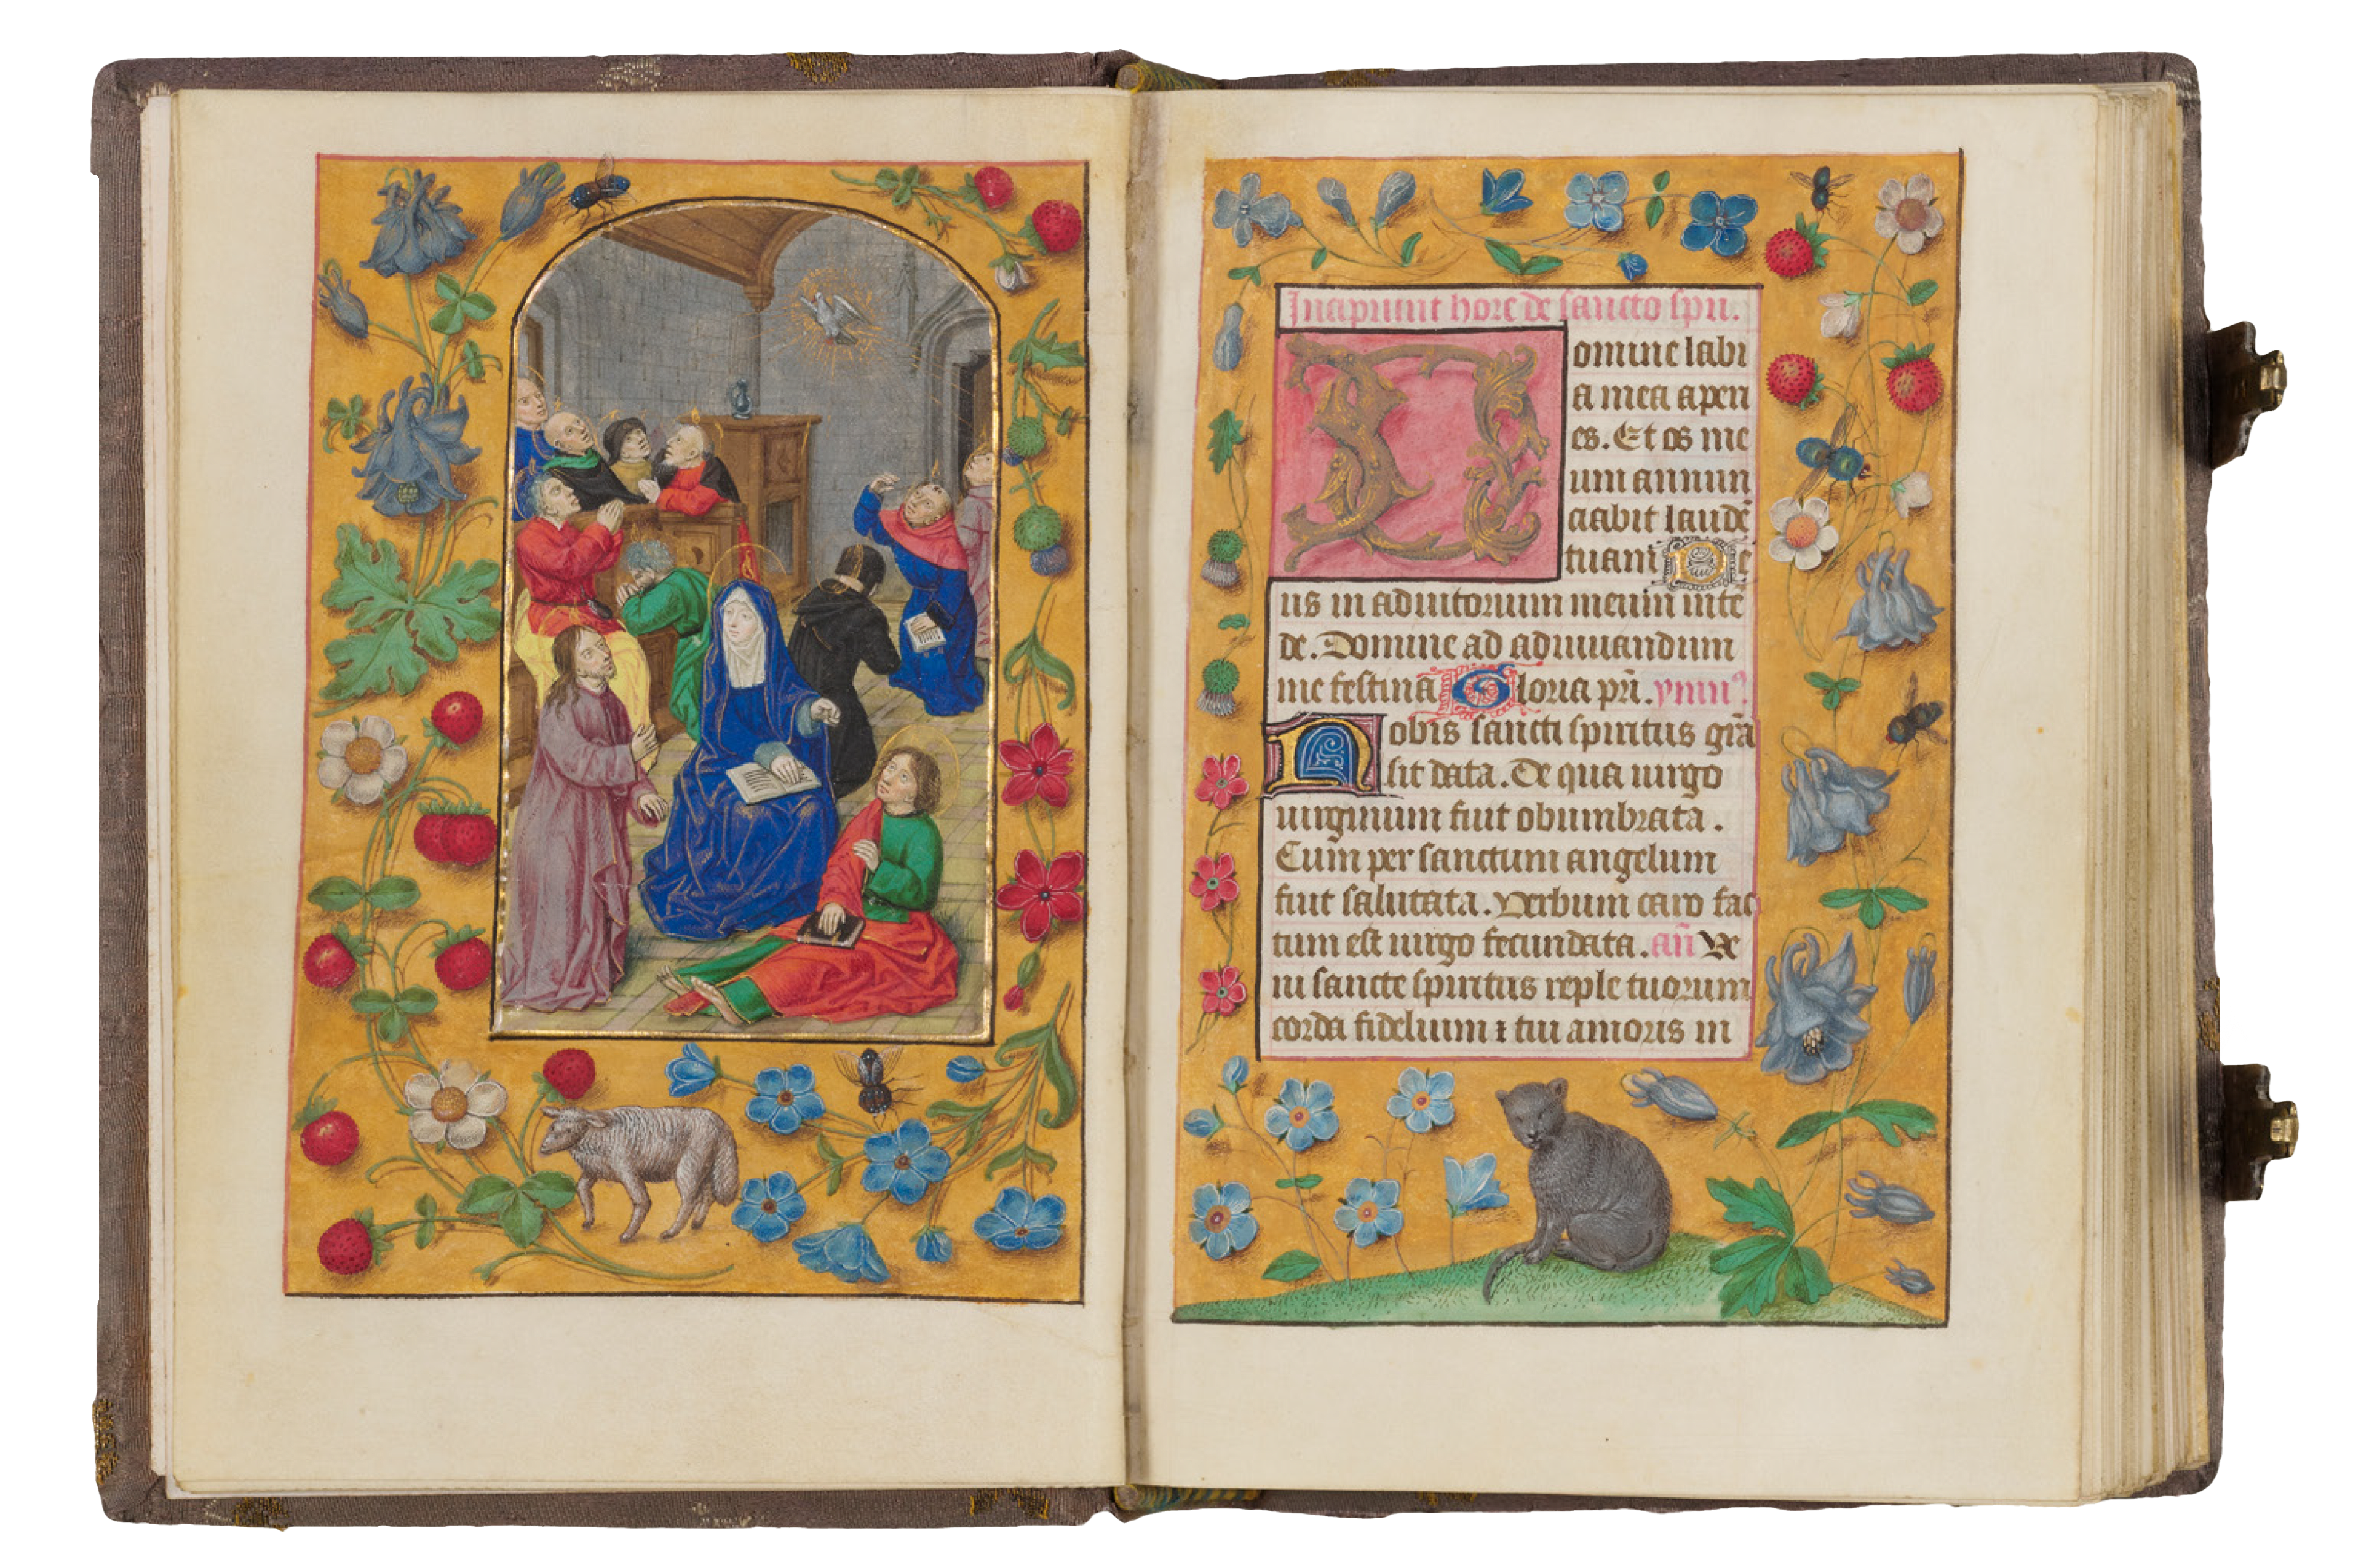 Incipiunt hore de sancto spū.
Domine labi
a mea aperi
es. Et os me
um annun
ciabit laudē
tuam De
us in adiutorium meum intē
de. Domine ad adiuuandum
me festina Gloria pr̄i. ymnꝰ
Nobis sancti spiritus gr̄a
sit data. De qua uirgo
uirginum fuit obumbrata.
Cum per sanctum angelum
fuit salutata. Verbum caro fac
tum est uirgo fecundata. an̄ Ve
ni sancte spiritus reple tuorum
corda fidelium ⁊ tui amoris in